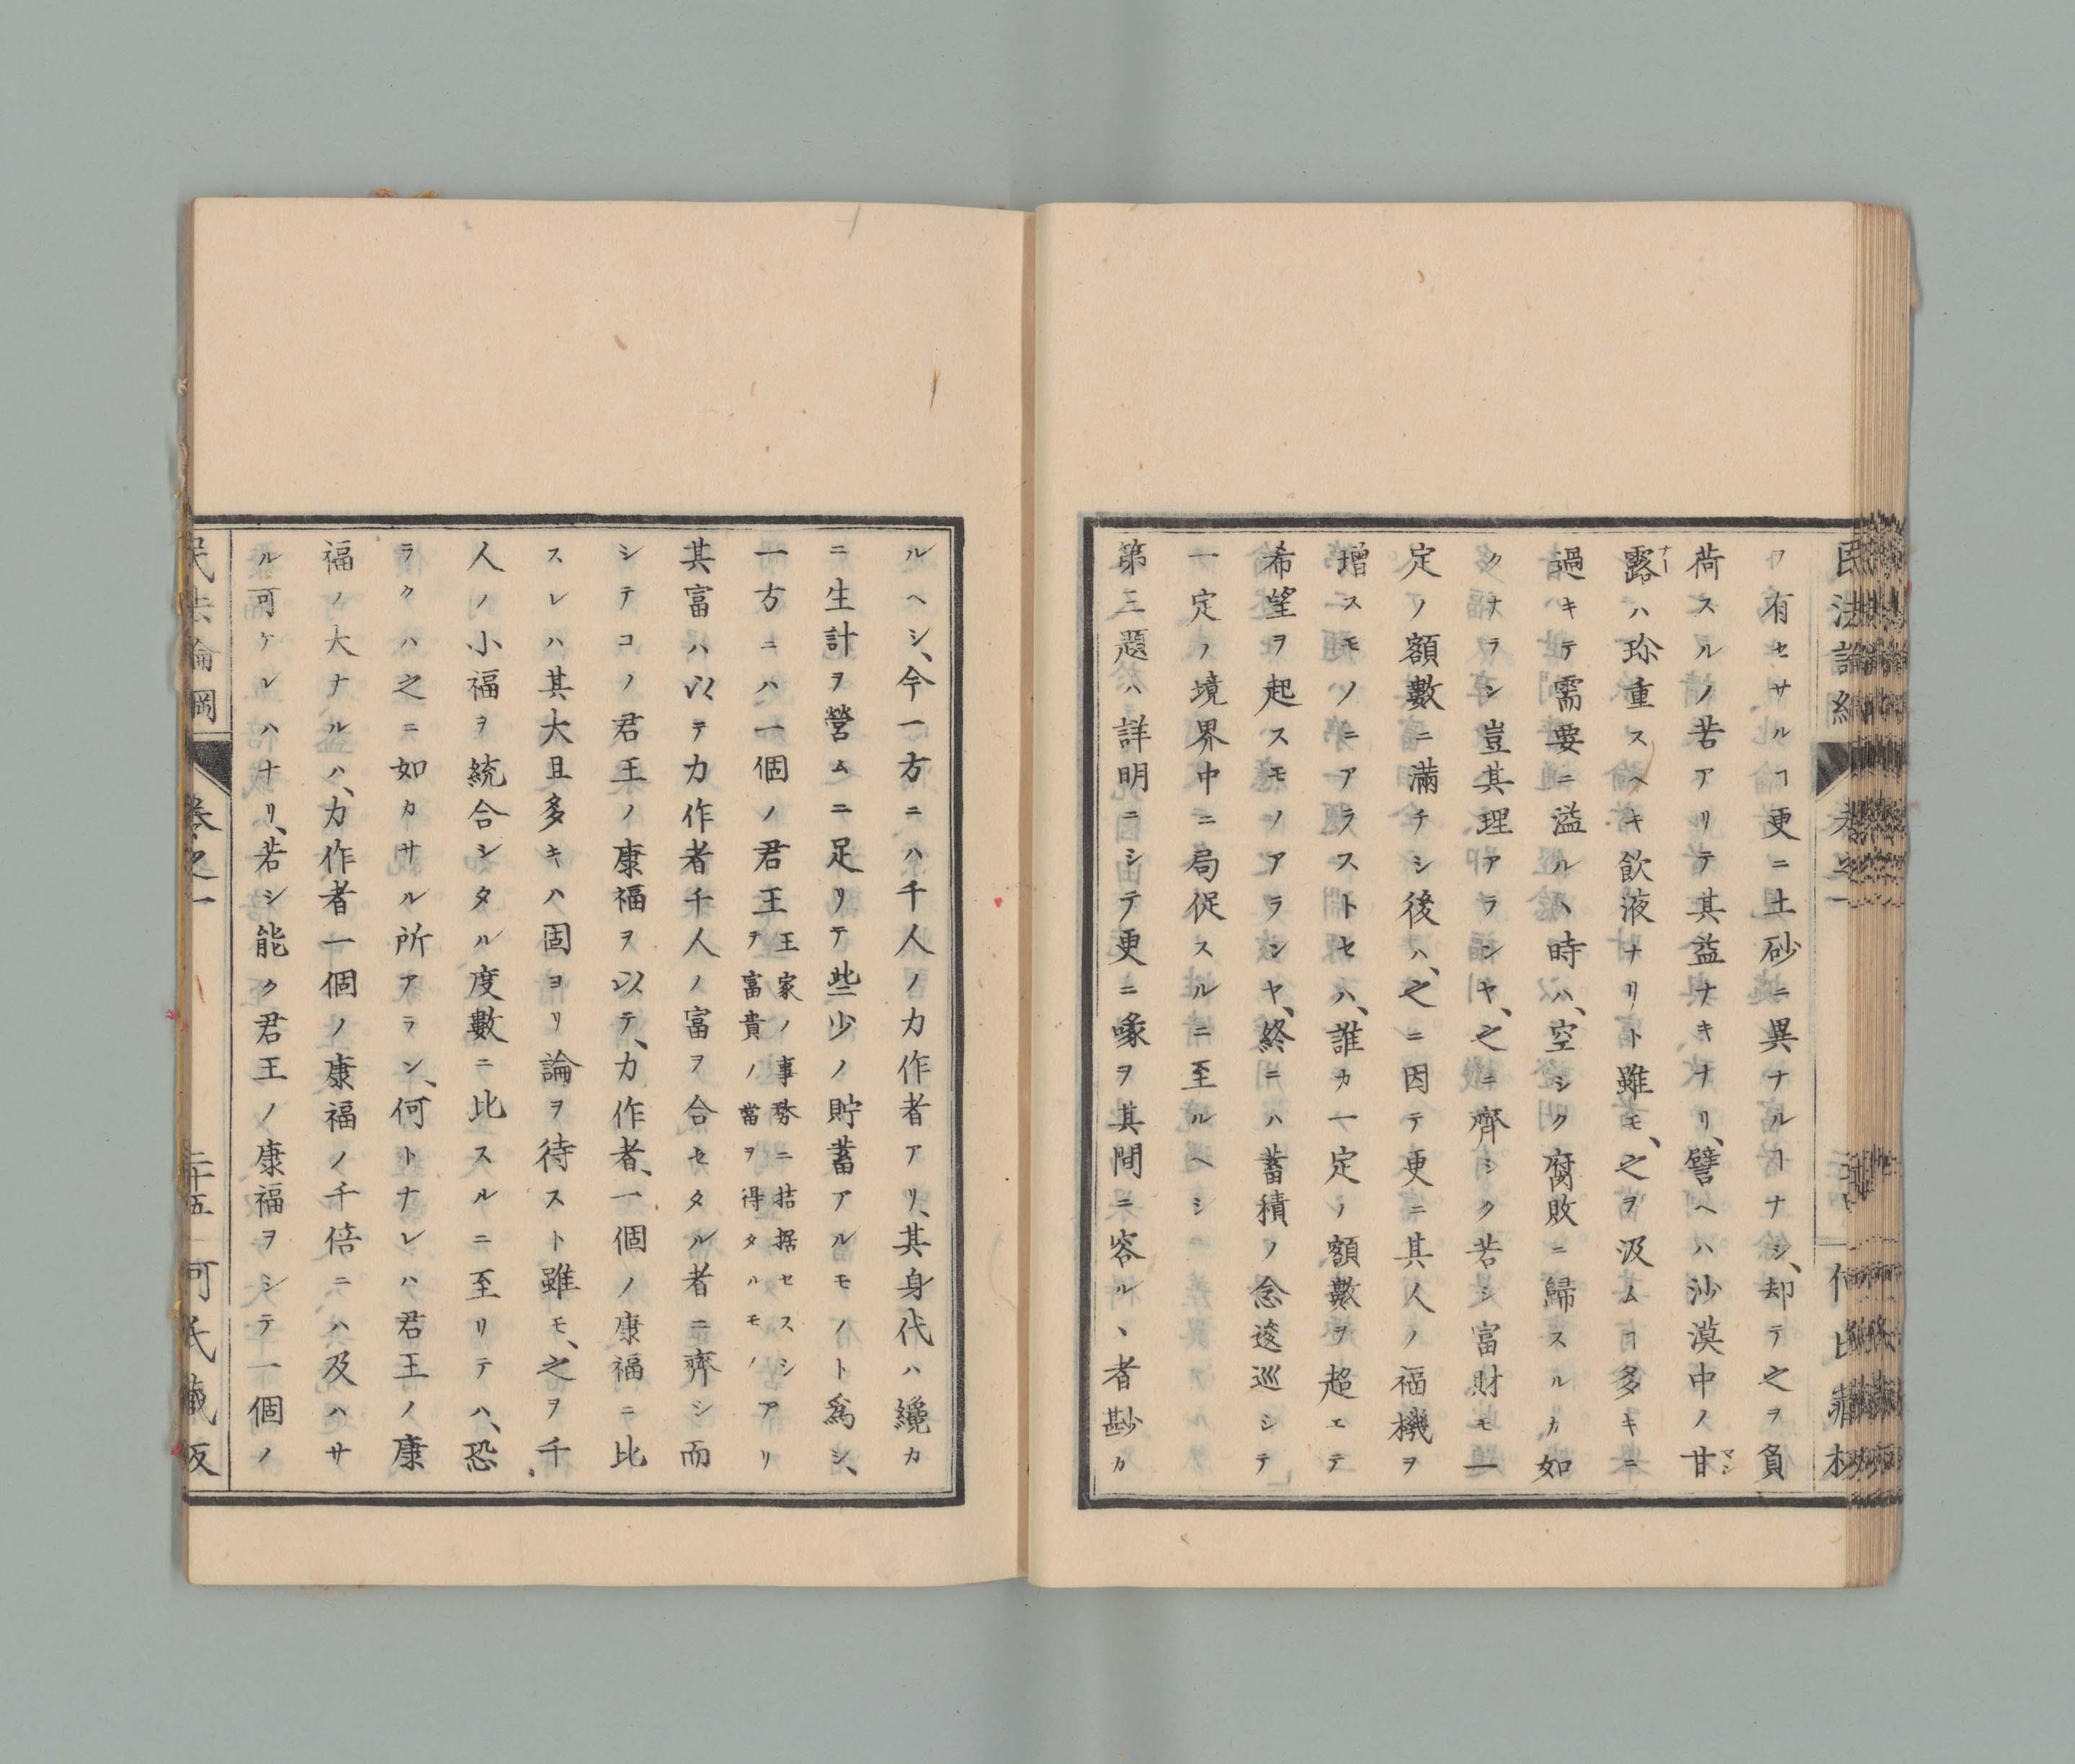 ヿ有セサルヿ更ニ土砂ニ異ナルヿナシ、却テ之ヲ負
荷スルノ苦アリテ其益ナキナリ、譬ヘハ沙漠中ノ甘マン
露ナーハ珍重スヘキ飲液ナリト雖モ、之ヲ汲ムヿ多キニ
過キテ需要ニ溢ルヽ時ハ、空シク腐敗ニ歸スルカ如
クナラン豈其理アランヤ、之ニ齊シク若シ富財モ一
定ノ額數ニ滿チシ後ハ、之ニ因テ更ニ其人ノ福機ヲ
増スモノニアラストセハ、誰カ一定ノ額數ヲ超エテ
希望ヲ起スモノアランヤ、終ニハ蓄積ノ念逡巡シテ
一定ノ境界中ニ局促スルニ至ルヘシ
第三題ハ詳明ニシテ更ニ喙ヲ其間ニ容ルヽ者尠カ
ルヘシ、今一方ニハ千人ノ力作者アリ、其身代ハ纔カ
ニ生計ヲ營ムニ足リテ些少ノ貯蓄アルモノト爲シ、
一方ニハ一個ノ君王王家ノ事務ニ拮据セスシテ富貴ノ當ヲ得タルモノアリ
其富ハ以テ力作者千人ノ富ヲ合セタル者ニ齊シ而
シテコノ君王ノ康福ヲ以テ、力作者、一個ノ康福ニ比
スレハ其大且多キハ固ヨリ論ヲ待スト雖モ、之ヲ千
人ノ小福ヲ統合シタル度數ニ比スルニ至リテハ、恐
ラクハ之ニ如カサル所アラン、何トナレハ君王ノ康
福ノ大ナルハ、力作者一個ノ康福ノ千倍ニハ及ハサ
ル可ケレハナリ、若シ能ク君王ノ康福ヲシテ一個ノ
民法論綱 卷之一 二十五 何氏藏版